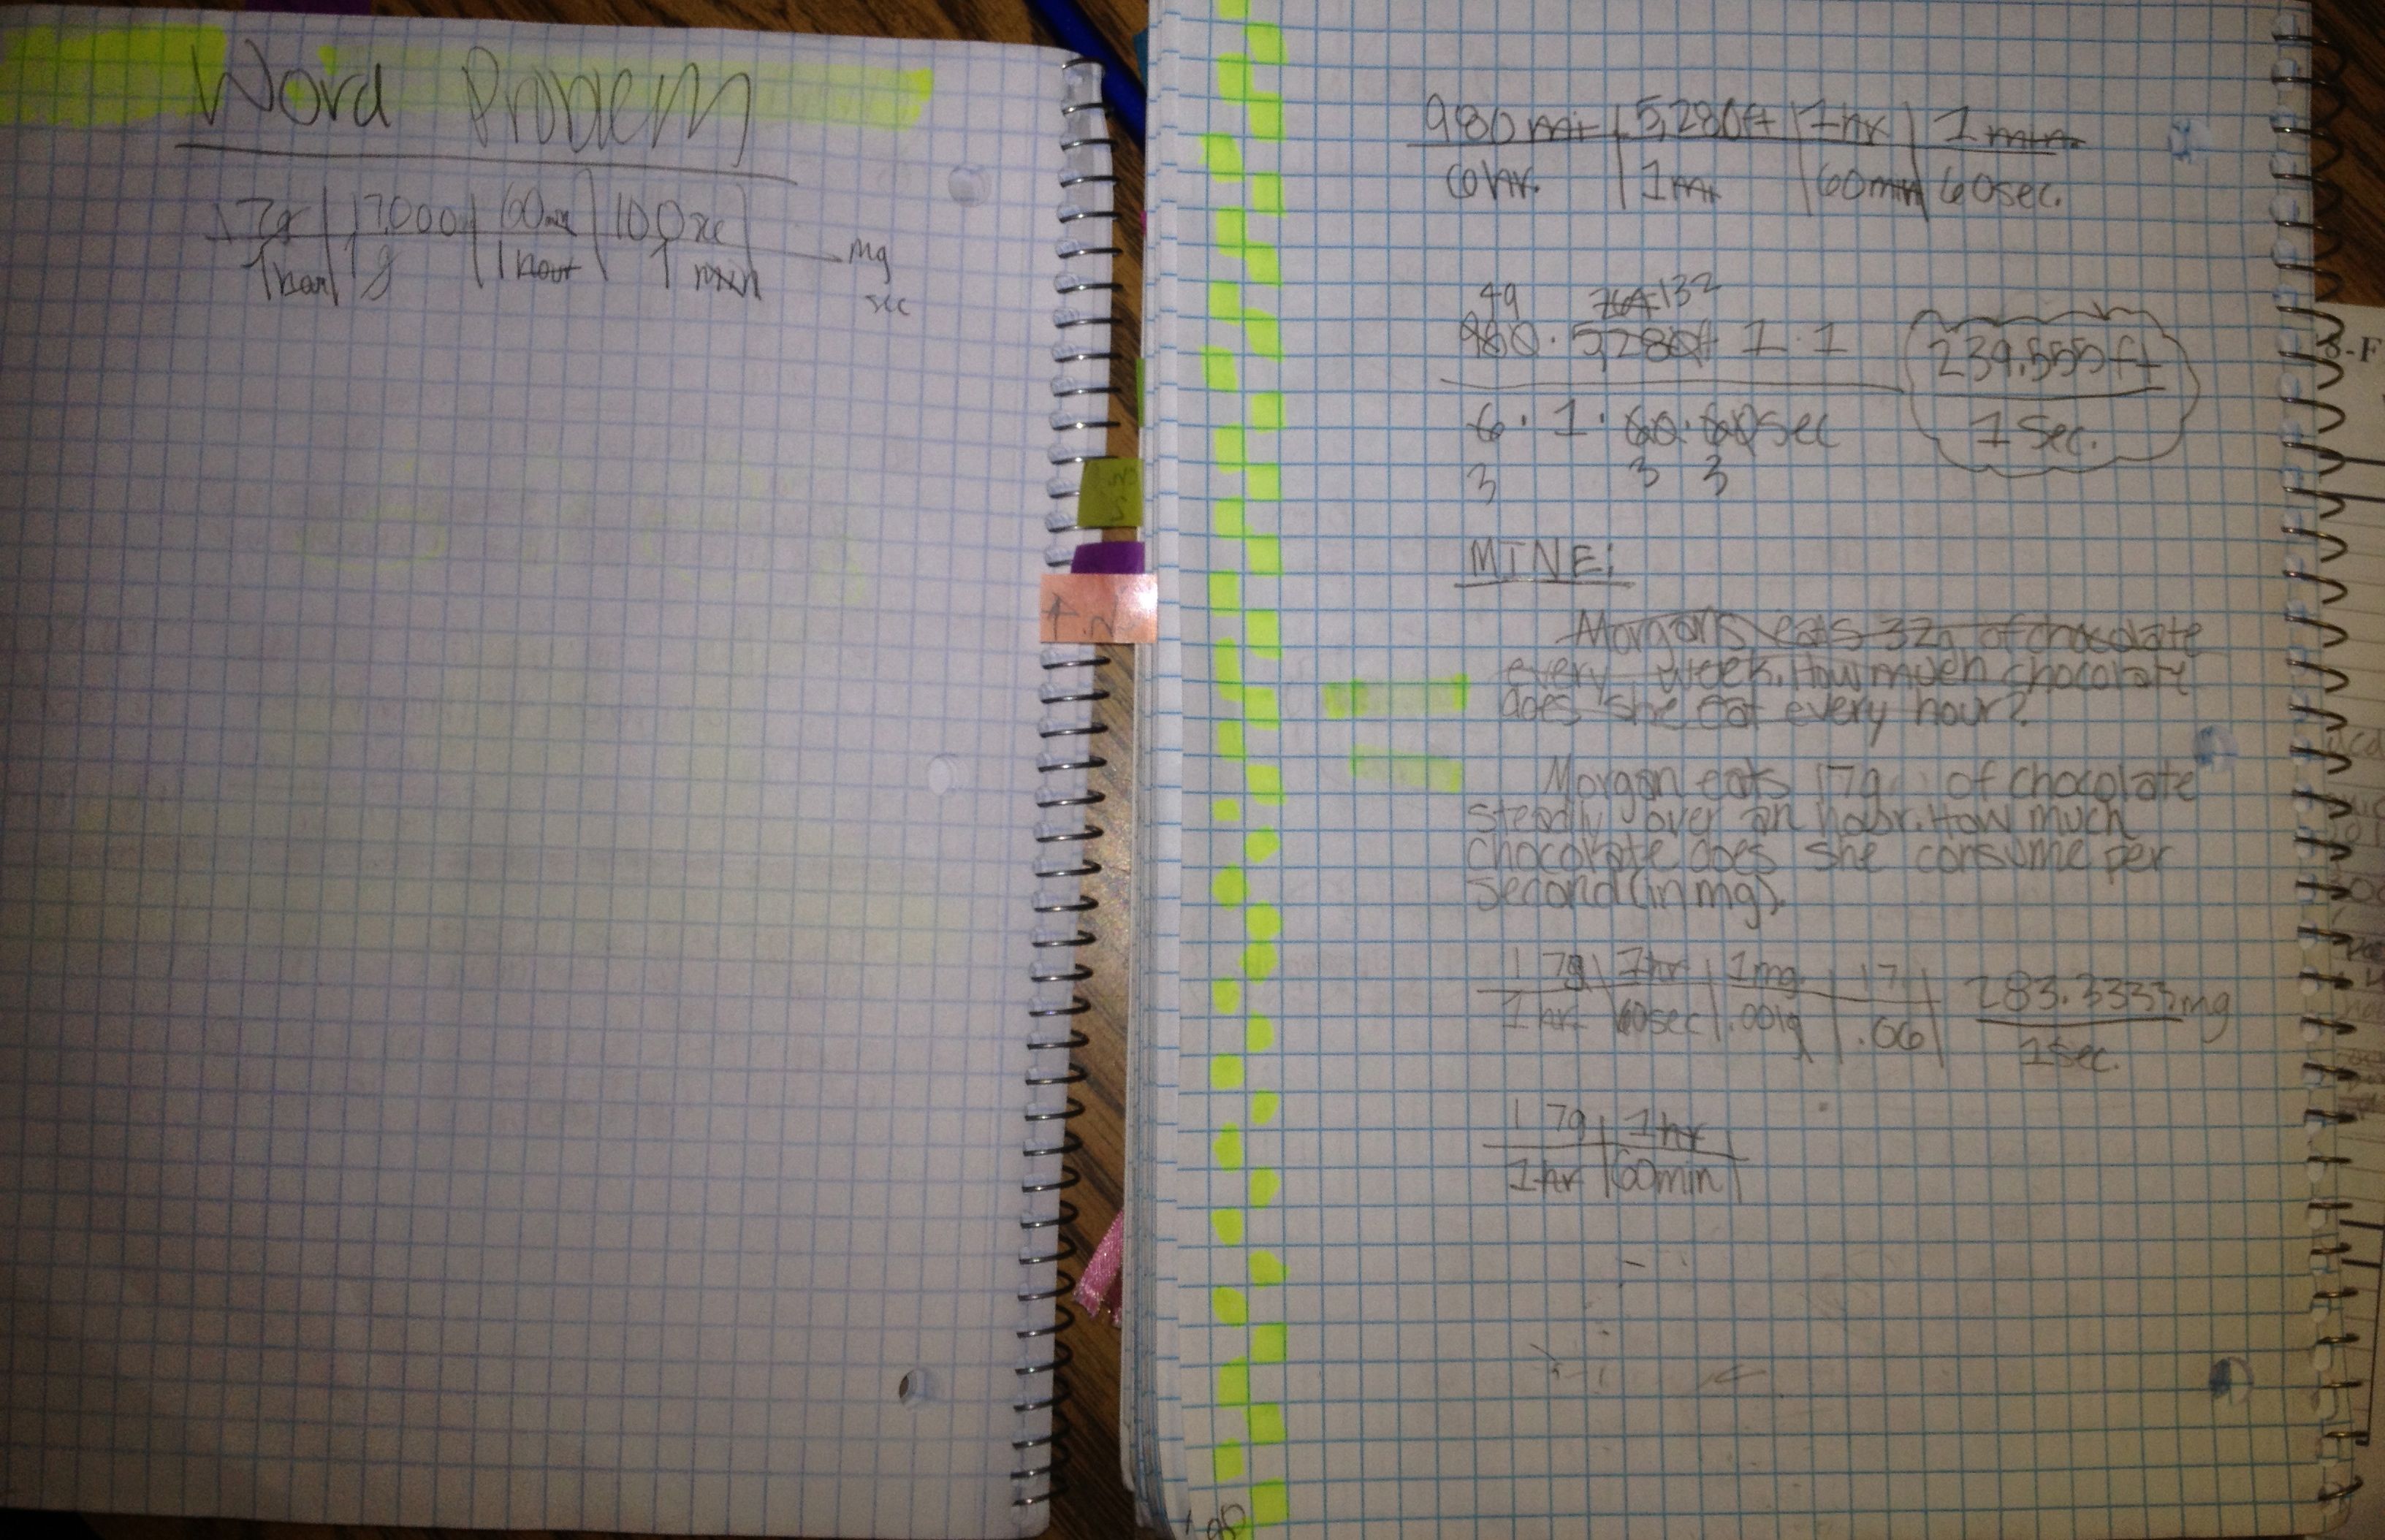 Word Problem
17g | 1,000 | 60min | 60sec
1hour | 1g | 1hour | 1 min
mg
sec
980mi | 5,280ft | 1hr | 1min
6hr. | 1mi | 60min | 60sec.
49 264 132
980 · 5,280ft 1 · 1
6 · 1 · 60 · 60sec
3 3 3
239.555ft
1 Sec.
MINE:
Morgans eats 32g of chocolate
every week. How much chocolate
does she eat every hour?
Morgan eats 17g of chocolate
steadily over an hour. How much
chocolate does she consume per
second (in mg).
17g | 1hr | 1mg | 17
1hr | 60sec | .001g | .06
283.3333mg
1sec.
17g | 1hr
1hr | 60min